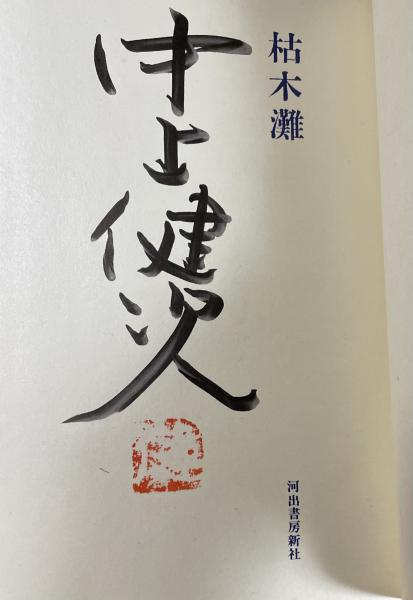 枯木灘
中上健次
河出書房新社